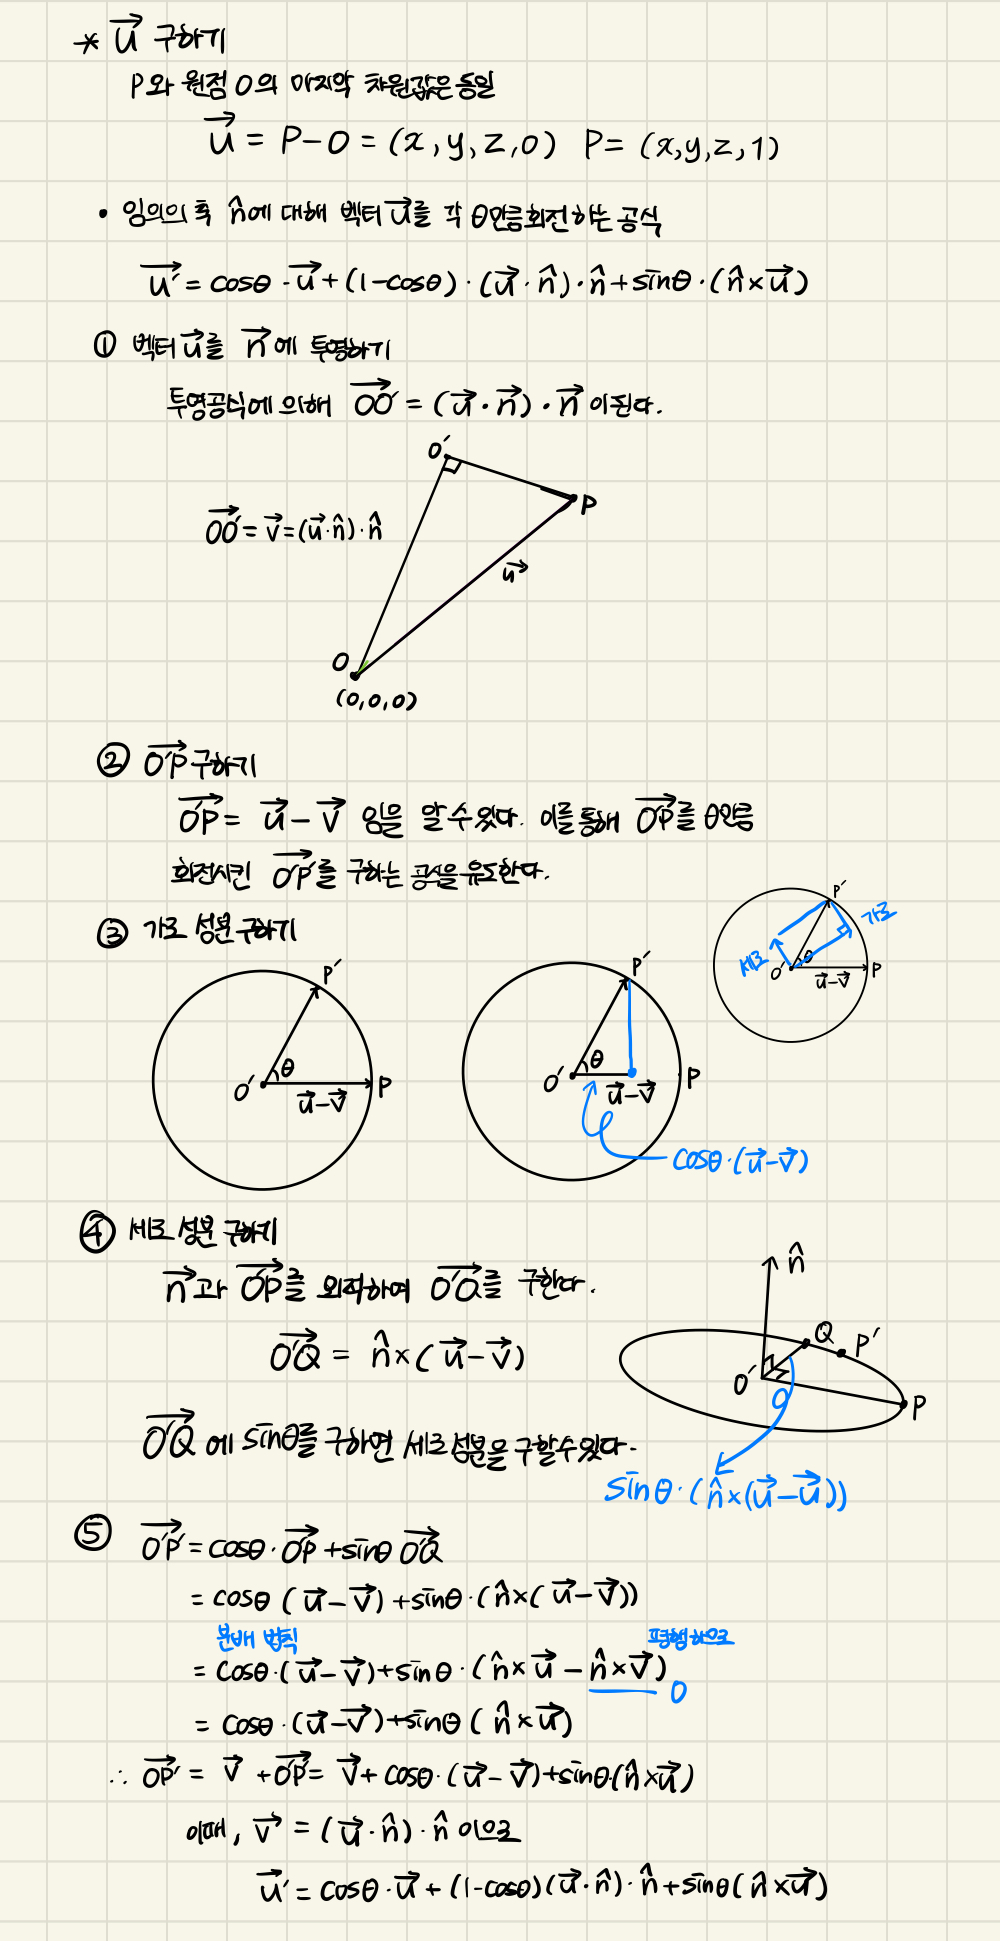 * u→ 구하기
P와 원점 O의 마지막 차원값은 동일
u→ = P-O = (x, y, z, 0) P = (x, y, z, 1)
• 임의의 축 n̂에 대해 벡터 u→를 각 θ만큼 회전하는 공식
u'→ = cosθ · u→ + (1-cosθ) · (u→ · n̂) · n̂ + sinθ · (n̂ × u→)
① 벡터 u→를 n→에 투영하기
투영공식에 의해 OO'→ = (u→ · n→) · n→ 이 된다.
O'
P
OO'→ = v→ = (u→ · n̂) · n̂
u→
O
(0,0,0)
② O'P→ 구하기
O'P→ = u→ - v→ 임을 알 수 있다. 이를 통해 O'P→를 θ만큼
회전시킨 O'P'→를 구하는 공식을 유도한다.
③ 가로 성분 구하기
P'
가로
세로
O' θ
u→-v→ P
P'
O' θ
u→-v→ P
P'
O' θ
u→-v→ P
cosθ · (u→-v→)
④ 세로 성분 구하기
n→과 O'P→를 외적하여 O'Q→를 구한다.
O'Q→ = n̂ × (u→ - v→)
n̂
Q P'
O'
P
O'Q→에 sinθ를 구하면 세로 성분을 구할 수 있다.
sinθ · (n̂ × (u→ - u→))
⑤ O'P'→ = cosθ · O'P→ + sinθ O'Q→
= cosθ (u→ - v→) + sinθ · (n̂ × (u→ - v→))
분배 법칙 평행하므로
= cosθ · (u→ - v→) + sinθ · (n̂ × u→ - n̂ × v→)
0
= cosθ · (u→ - v→) + sinθ (n̂ × u→)
∴ OP'→ = v→ + O'P'→ = v→ + cosθ · (u→ - v→) + sinθ · (n̂ × u→)
이때, v→ = (u→ · n̂) · n̂ 이므로
u'→ = cosθ · u→ + (1-cosθ)(u→ · n̂) · n̂ + sinθ (n̂ × u→)